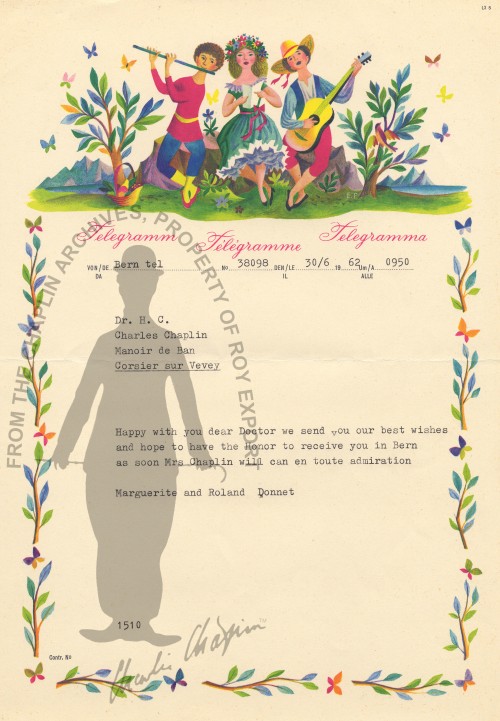 LX 8
Telegramm Télégramme Telegramma
VON/DE Bern tel No 38098 DEN/LE 30/6 19 62 Um/A 0950
DA IL ALLE
Dr. H. C.
Charles Chaplin
Manoir de Ban
Corsier sur Vevey
Happy with you dear Doctor we send you our best wishes
and hope to have the honor to receive you in Bern
as soon Mrs Chaplin will can en toute admiration
Marguerite and Roland Donnet
1510
Contr. No
FROM THE CHAPLIN ARCHIVES, PROPERTY OF ROY EXPORT
Charlie Chaplin